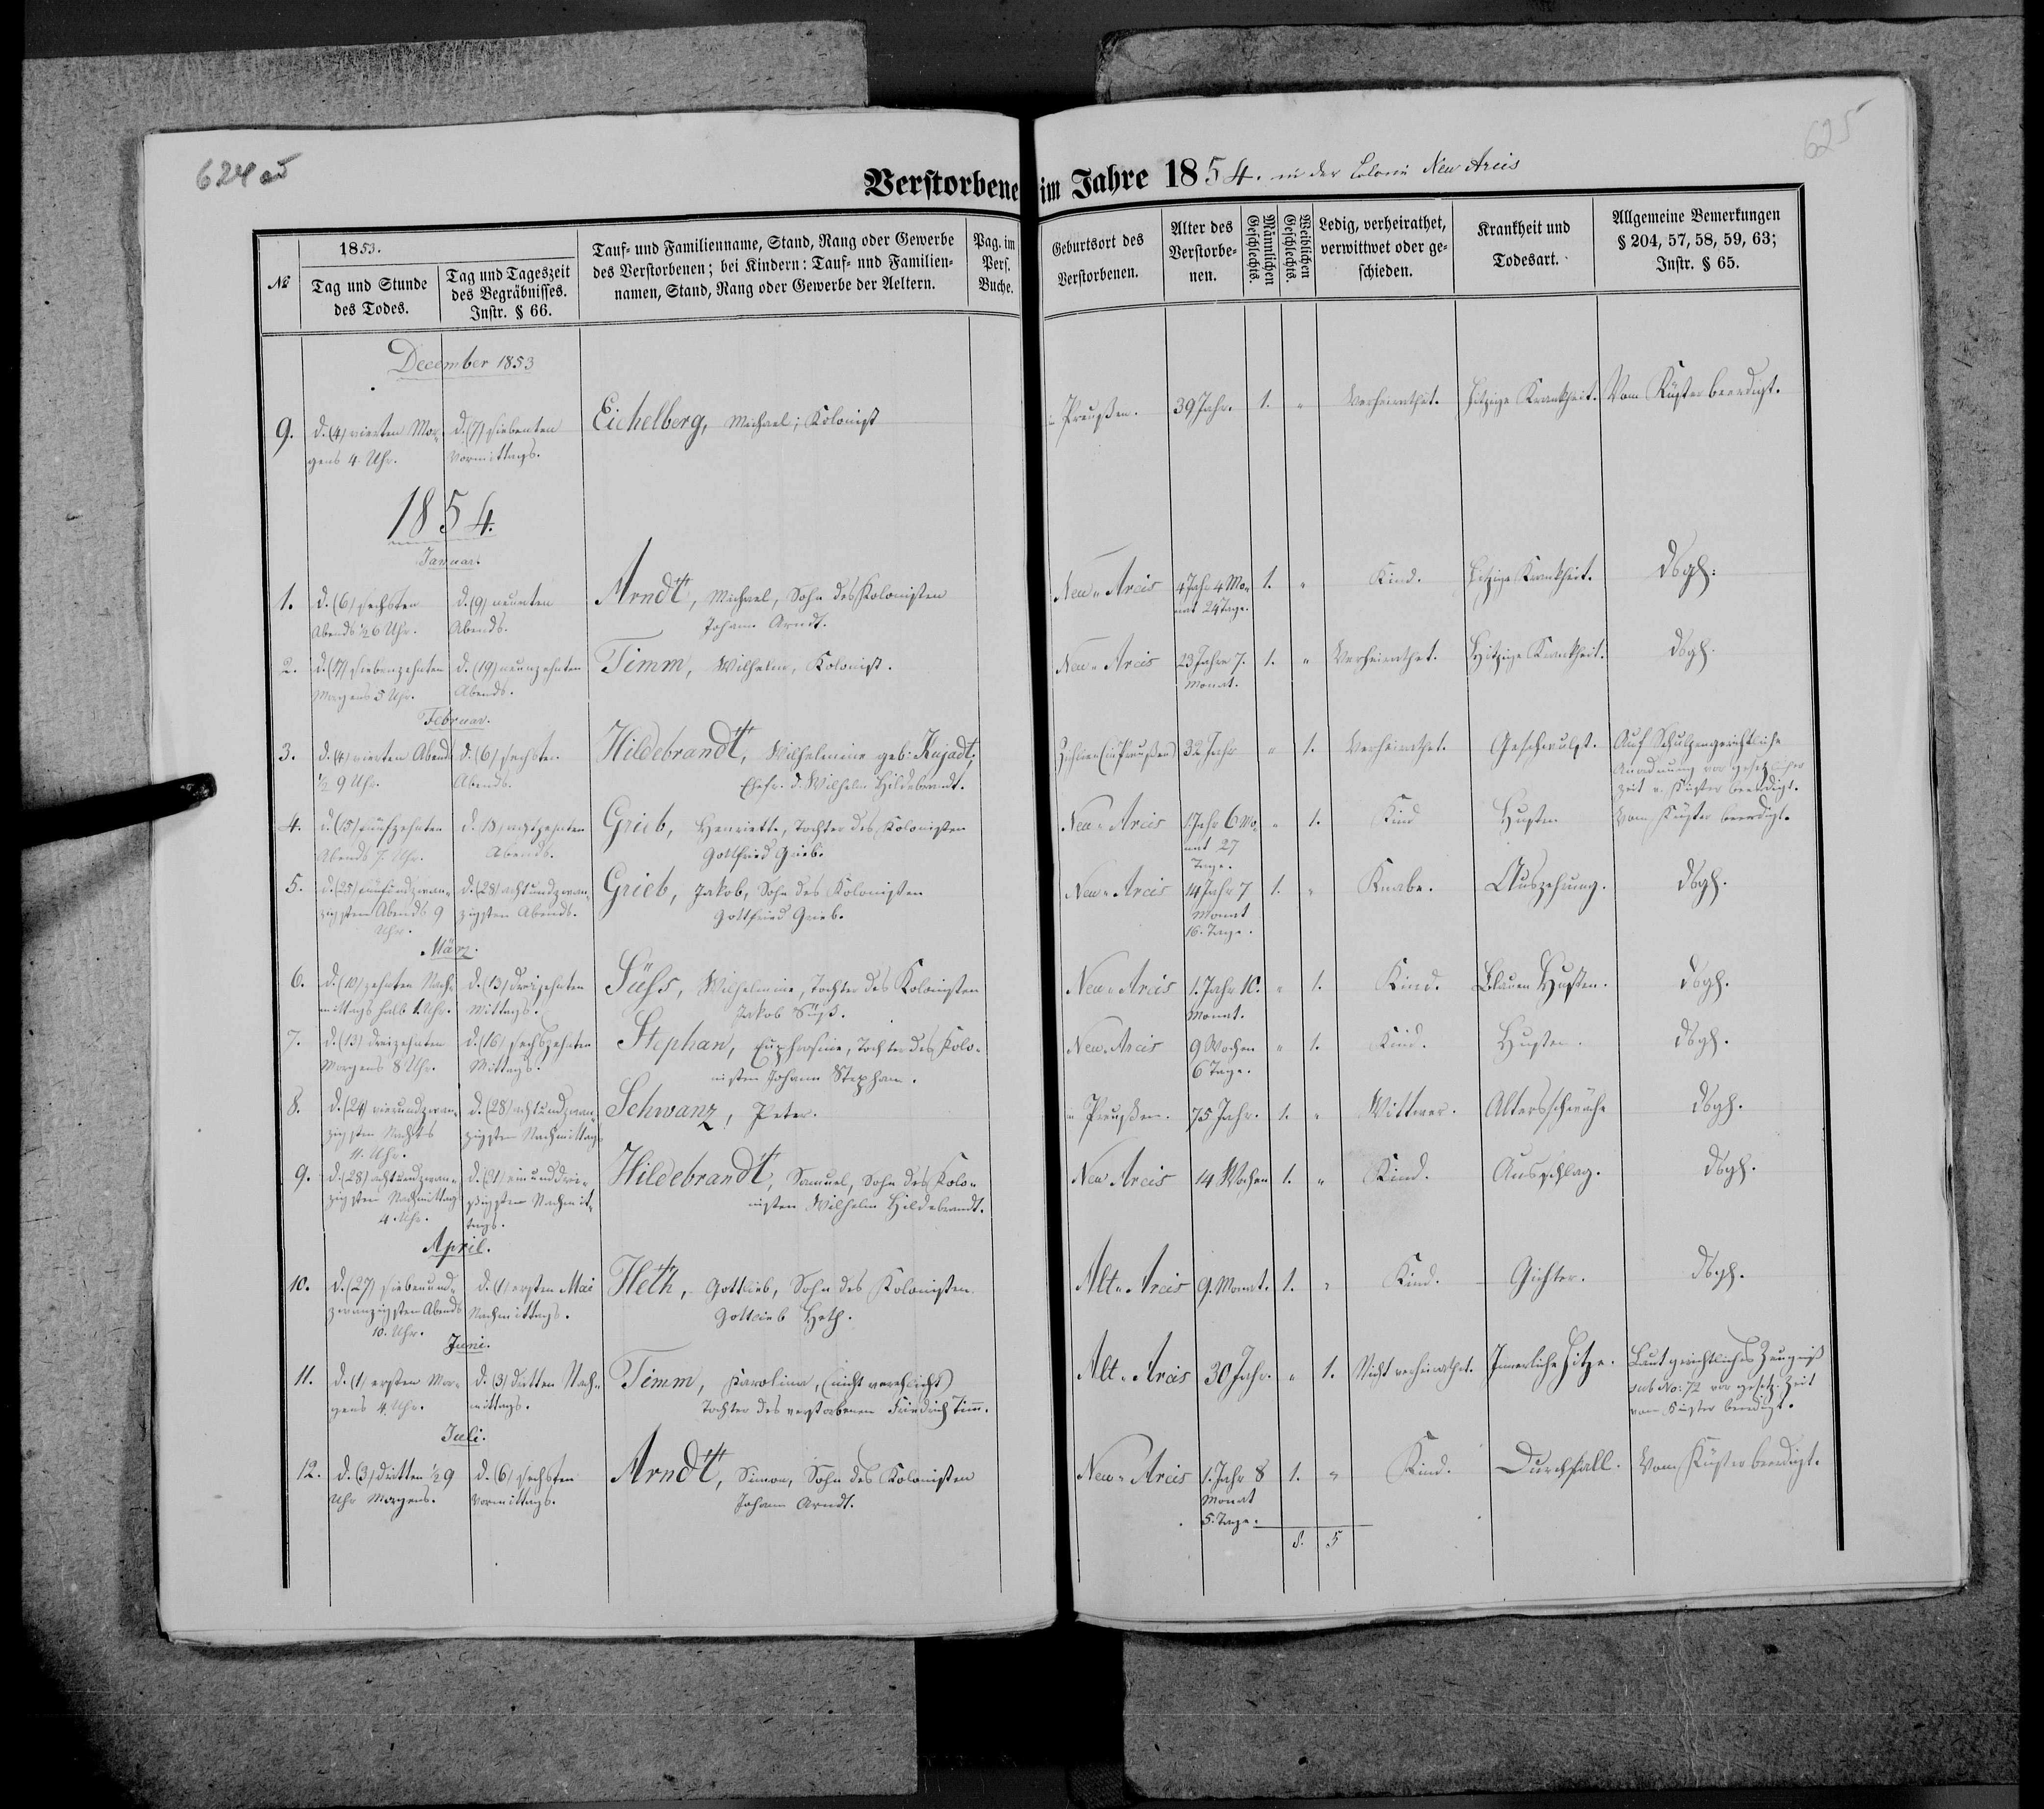 624
625
Verstorbene im Jahre 1854. in der Colonie Neu Arcis
№
1853.
Tag und Stunde des Todes.
Tag und Tageszeit des Begräbnisses. Instr. § 66.
Tauf- und Familienname, Stand, Rang oder Gewerbe
des Verstorbenen; bei Kindern: Tauf- und Familien-
namen, Stand, Rang oder Gewerbe der Aeltern.
Pag. im Pers. Buche.
Geburtsort des Verstorbenen.
Alter des Verstorbe-nen.
Männlichen Geschlechts.
Weiblichen Geschlechts.
Ledig, verheirathet, verwittwet oder ge-schieden.
Krankheit und Todesart.
Allgemeine Bemerkungen § 204, 57, 58, 59, 63; Instr. § 65.
December 1853
9. d. (4) vierten Mor- d. (7) siebenten Eichelberg, Michael; Kolonist in Preußen. 39 Jahr. 1. „ Verheirathet. Hitzige Krankheit. Vom Küster beerdigt.
gens 4. Uhr. Vormittags.
1854.
Januar.
1. d. (6) sechsten d. (9) neunten Arndt, Michael, Sohn des Kolonisten Neu-Arcis 4 Jahr 4 Mo- 1. „ Kind. Hitzige Krankheit. dsgl.
Abends ½6 Uhr. Abends. Johann Arndt. nat 24 Tage.
2. d. (17) siebenzehnten d. (19) neunzehnten Timm, Wilhelm, Kolonist. Neu-Arcis 23 Jahre 7. 1. „ Verheirathet. Hitzige Krankheit. dsgl.
Morgens 5 Uhr. Abends. Monat.
Februar.
3. d. (4) vierten Abends d. (6) sechsten Hildebrandt, Wilhelmine geb: Kujadt, (in Preußen) 32 Jahr „ 1. Verheirathet. Geschwulst. Auf Schulzengerichtliche
½ 9 Uhr. Abends. Ehefr. d. Wilhelm Hildebrandt. Anordnung vor gesetzlicher
Zeit v. Küster beerdigt.
4. d. (15) fünfzehnten d. 18) achtzehnten Grieb, Henriette, Tochter des Kolonisten Neu-Arcis 1 Jahr 6 Mo- „ 1. Kind Husten Vom Küster beerdigt.
Abends 7. Uhr. Abends. Gottfried Grieb. nat 27
Tage.
5. d. (25) fünfundzwan- d. (28) achtundzwan- Grieb, Jakob, Sohn des Kolonisten Neu-Arcis 14 Jahr 7 1. „ Knabe. Auszehrung. dsgl.
zigsten Abends 9 zigsten Abends. Gottfried Grieb. Monat
Uhr. 16. Tage.
März.
6. d. (10) zehnten Nach- d. (13) dreizehnten Süss, Wilhelmine, Tochter des Kolonisten Neu-Arcis 1. Jahr 10. „ 1. Kind. Blauen Husten. dsgl.
mittags halb 1. Uhr. Mittags. Jakob Süß. Monat.
7. d. (13) dreizehnten d. (16) sechszehnten Stephan, Euphrosine, Tochter des Kolo- Neu-Arcis 9 Wochen „ 1. Kind. Husten. dsgl.
Morgens 8 Uhr. Mittags. nisten Johann Stephan. 6 Tage.
8. d. (24) vierundzwan- d. (28) achtundzwan- Schwanz, Peter. in Preußen. 75 Jahr. 1. „ Wittwer. Altersschwäche dsgl.
zigsten Nachts zigsten Nachmittags
11. Uhr.
9. d. (28) achtundzwan- d. (31) einunddrei- Hildebrandt, Samuel, Sohn des Kolo- Neu Arcis 14 Wochen 1. „ Kind. Ausschlag. dsgl.
zigsten Nachmittag ßigsten Nachmit- nisten Wilhelm Hildebrandt.
4. Uhr. tags.
April.
10. d. (27) siebenund- d. (1) ersten Mai Heth, Gottlieb, Sohn des Kolonisten Alt-Arcis 9. Monat. 1. „ Kind. Gichter. dsgl.
zwanzigsten Abends Nachmittags. Gottlieb Heth.
10. Uhr.
Juni.
11. d. (1) ersten Mor- d. (3) dritten Nach- Timm, Karolina, (nicht verehlicht) Alt-Arcis 30 Jahr. „ 1. Nicht verheirathet. Innerliche Hitze. Laut gerichtliches Zeugniß
gens 4. Uhr. mittags. Tochter des verstorbenen Friedrich Timm. sub No: 72 vor gesetz. Zeit
vom Küster beerdigt.
Juli.
12. d. (3) dritten ½ 9 d. (6) sechsten Arndt, Simon, Sohn des Kolonisten Neu-Arcis 1. Jahr 8 1. „ Kind. Durchfall. Vom Küster beerdigt.
Uhr Morgens. Vormittags. Johann Arndt. Monat
5. Tage.
8. 5